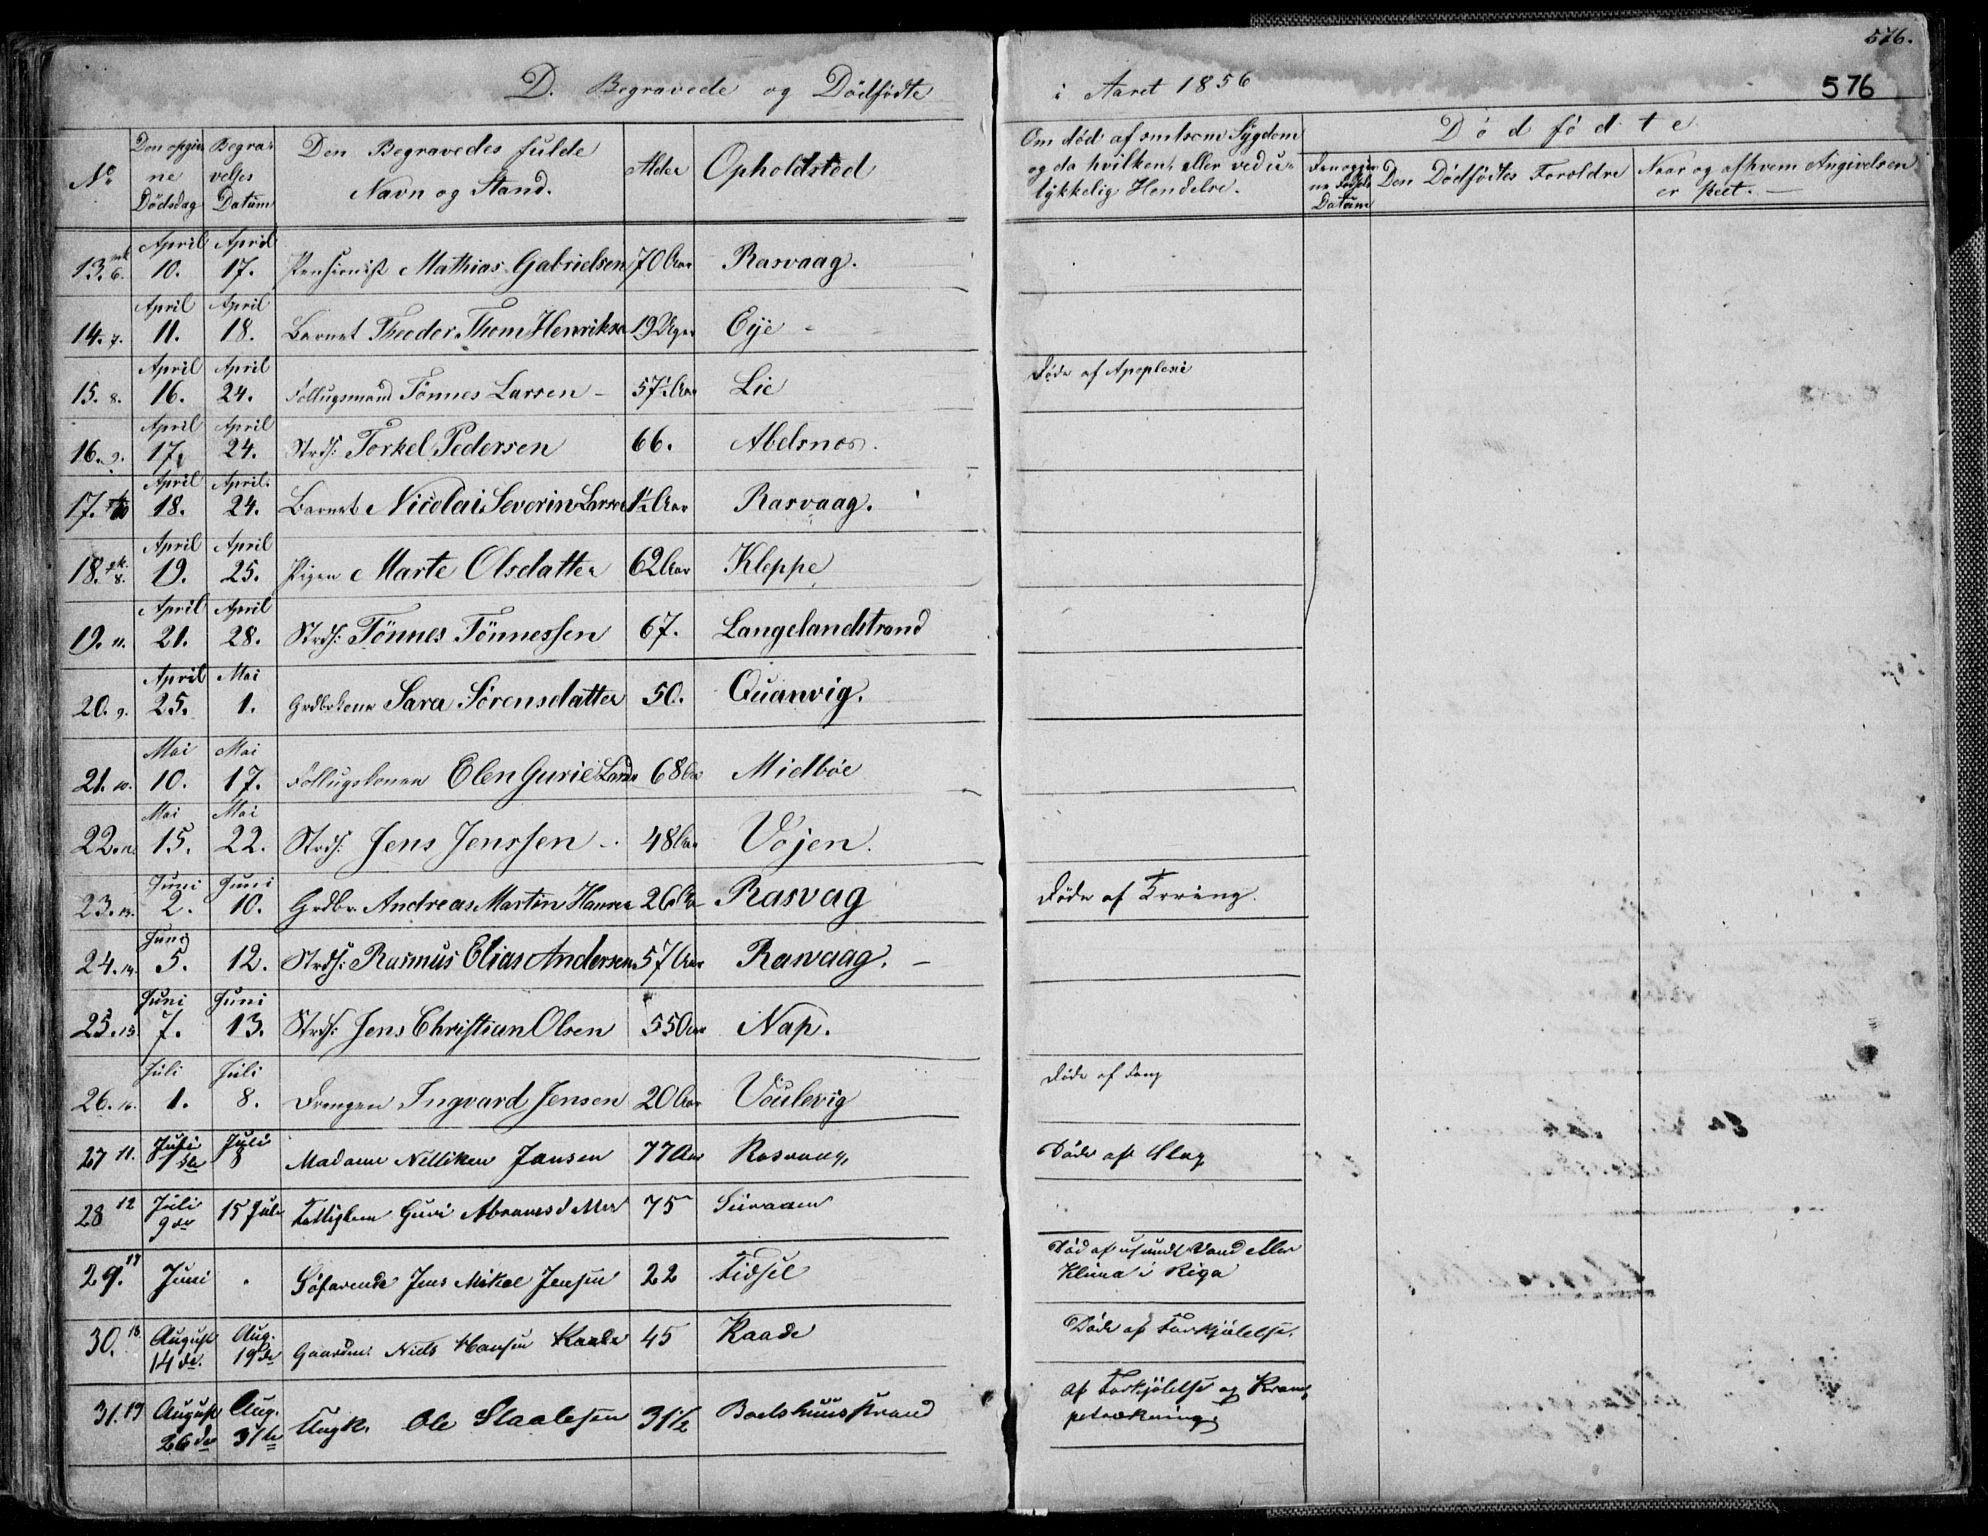 576.
576
D. Begravede og Dødfødte i Aaret 1856
No
Den opgivne Dødsdag
Begravelses Datum
Den Begravedes fulde Navn og Stand.
Alder
Opholdsted
Om død af smitsom Sygdom og da hvilken, eller ved ulykkelig Hendelse.
Dødfødte
Datum
Den Dødfødtes Forældre
Naar og af hvem Angivelsen er skeet.
13. mk 6. April 10. April 17. Pensionist Mathias Gabrielsen 70 Aar Rasvaag.
14. 7. April 11. April 18. Barnet Theodor Thom Henriksen 19 Uger Eye
15. 8. April 16. April 24. Føllugsmand Tønnes Larsen 57½ Aar Lie Døde af Apoplexie
16. 9. April 17. April 24. Strds: Torkel Pedersen 66. Abelsnes.
17. 10 April 18. April 24. Barnet Nicolai Severin Larsen 1½ Aar Rasvaag.
18. qk. 8. April 19. April 25. Pigen Marte Olsdatter 62 Aar Kleppe
19. 11. April 21. April 28. Strds: Tönnes Tönnessen 67. Langelandstrand
20. 9. April 25. Mai 1. Grdbrkone Sara Sörensdatter 50. Quanvig.
21. 10. Mai 10. Mai 17. Føllugskonen Elen Gurie Larsd 68 Aar Midbøe
22. 12. Mai 15. Mai 22. Strds: Jens Jenssen 48 Aar Vojen.
23. 13. Juni 2. Juni 10. Grdbr. Andreas Martin Hansen 26 Aar Rasvag Døde af Tæring.
24. 14. Juni 5. 12. Strds: Rasmus Elias Andersen 57 Aar Rasvaag.
25. 15. Juni 7. Juni 13. Strds: Jens Christian Olsen 55 Aar Nap.
26. 16. Juli 1. Juli 8. Drengen Ingvard Jensen 20 Aar Voulevig Døde af
27 11. Juli 1ste Juli 8 Madame Nilliken Jansen 77 Aar Rasvaag, Døde af Slag
28 12 Juli 9de 15 Juli Fattiglem Guri Abramsdatter 75 Siiraaen
29. 17 Juni . Søfarende Jens Mikal Jensen 22 Fidsel Død af usundt Vand eller Klima i Riga
30. 18 August 14de. Aug. 19de Gaardm: Niels Hansen Raade 45 Raade Døde af Forkjølelse.
31. 19 August 26de Aug. 31te Ungk. Ole Staalesen 31½ Baadshuusstrand af Forkjølelse og Krampetrækning